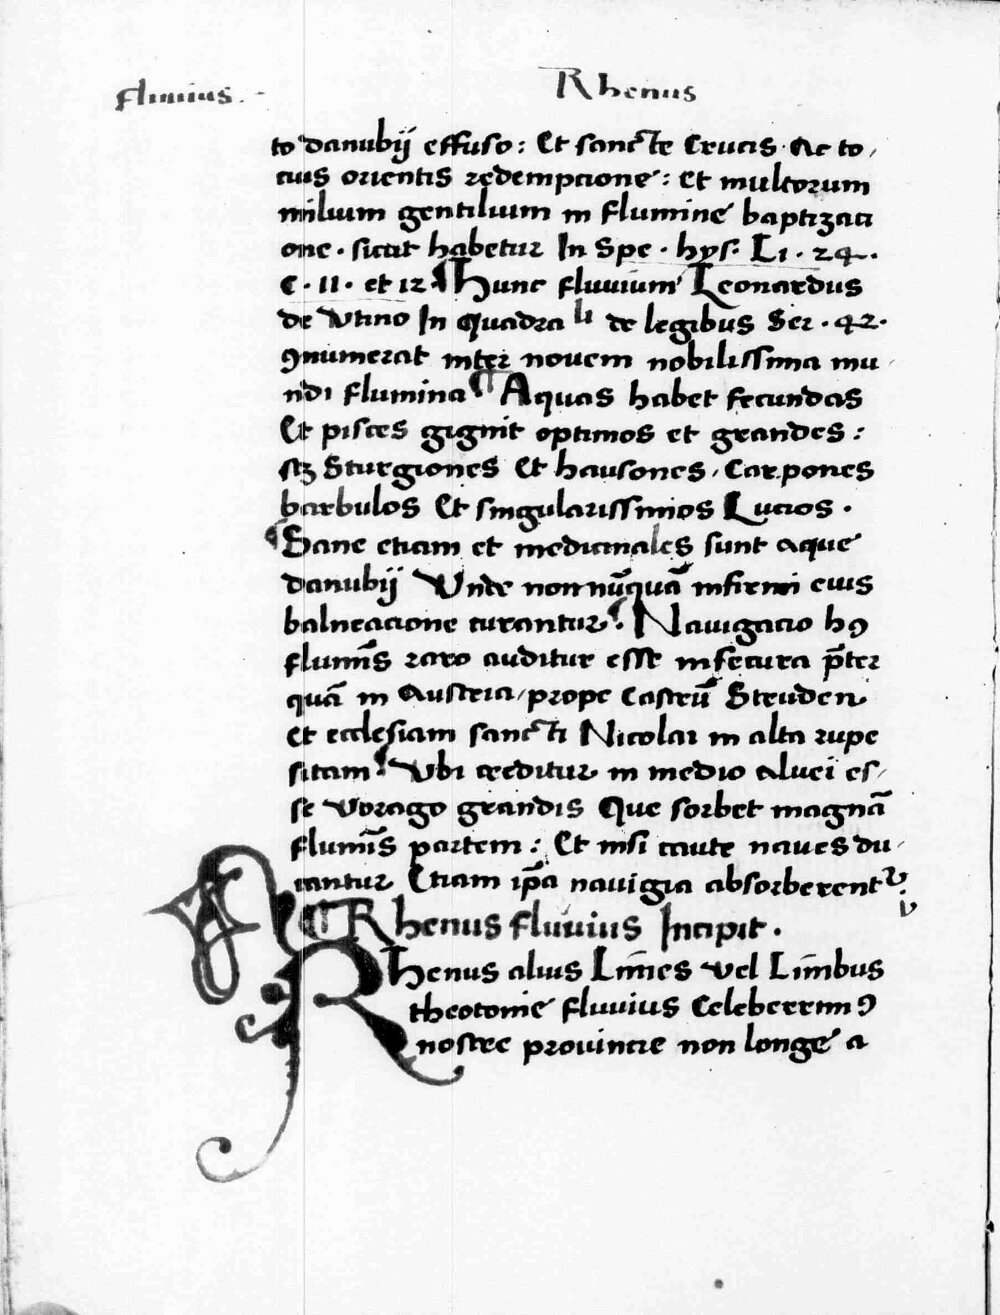 fluuius.
Rhenus
to danubij effuso: Et sancte Crucis. Ac to/
cius orientis redempcione: et multorum
milium gentilium in flumine baptizaci
one. sicut habetur In Spe. hys: Li. 24.
C. 11. et 12 ¶ Hunc fluuium Leonardus
de Vtino In Quadraˡⁱ de legibus Ser. 42.
ꝯnumerat inter nouem nobilissima mu/
ndi flumina ¶ Aquas habet fecundas
Et pisces gignit optimos et grandes:
sꝫ Sturgiones Et hausones, Carpones
barbulos Et singularissimos Lucios.
¶ Sane etiam et medicinales sunt aque
danubij Vnde nonnūquā infirmi eius
balneacione curantur ¶ Nauigacio hꝯ
flumīs raro auditur esse insecura p̄ter
quā in Austria, prope Castrū Struden
et ecclesiam sancti Nicolai in alta rupe
sitam ¶ Vbi creditur in medio aluei es/
se vorago grandis Que sorbet magnā
flumīs partem: Et nisi caute naues du/
cantur Etiam ip̄a nauigia absorberentᷣ.
¶ Rhenus fluuius Incipit.
Rhenus alius Lim̄es vel Lim̄bus
theotonie fluuius Celeberrimꝯ
nostre prouincie non longe a